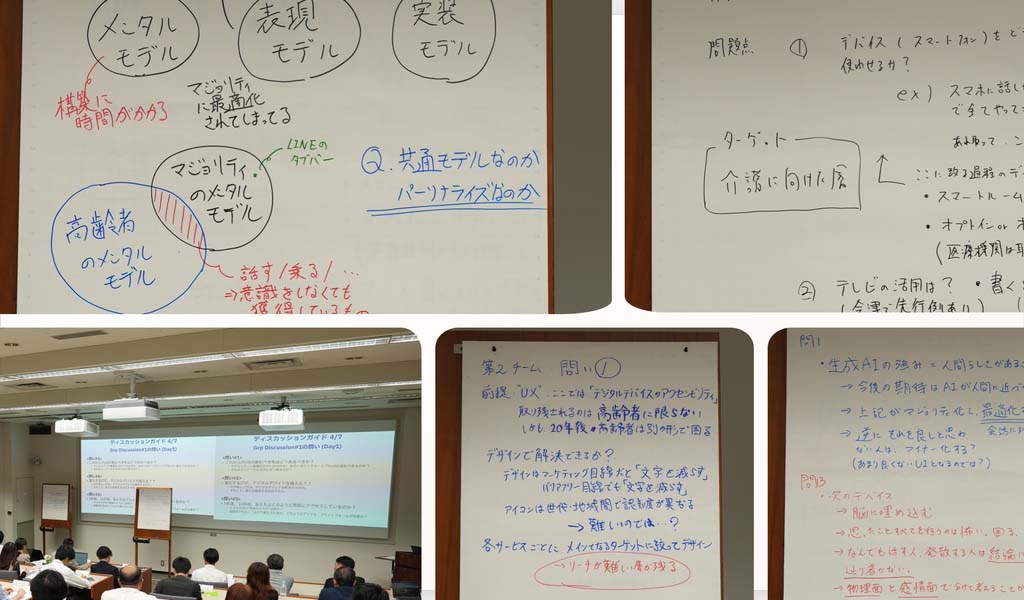 メンタル
モデル
表現
モデル
実装
モデル
構築に
時間がかかる
マジョリティ
に最適化
されてしまってる
LINEの
タブバー
マジョリティ
のメンタル
モデル
Q. 共通モデルなのか
パーソナライズなのか
高齢者
のメンタル
モデル
話す/乗る/…
⇒意識をしなくても
獲得しているもの
問題点 ① デバイス(スマートフォン)をど
使わせるか?
ex) スマホに話し
で全てやって
ターゲット
介護に向けた層
ここに至る過程のデ
・スマートルーム
・オプトイン or オ
(医療機関は
② テレビの活用は? ・書く
ディスカッションガイド 4/7
Grp Discussion#1の問い (Day1)
ディスカッションガイド 4/7
Grp Discussion#1の問い (Day1)
第2チーム 問い①
前提:"UX" ここでは「デジタルデバイスのアクセシビリティ」
取り残されるのは高齢者に限らない
しかも、20年後の高齢者は別の形で困る
デザインで解決できるか?
デザインはマーケティング目線だと「文字を減らす」
バリアフリー目線でも「文字を減らす」
アイコンは世代・地域間で認知度が異なる
→難しいのでは…?
各サービスごとに メインとなるターゲットに絞ってデザイン
→リーチが難しい層が残る
問1
・生成AIの強み=人間らしさがあるこ
→今後の期待はAIが人間に近づ
→上記がマジョリティ化し、最適化
→逆にそれを良しと思わ
ない人は、マイナー化する?
(あまり良くないUIとなるのでは?)
問3
・次のデバイス
→脳に埋め込む
→思ったことすべてを行うのは怖い、困る
→なんでもはす人、発散する人は結論に
辿り着かない。
→物理面と感情面で分けて考えることが